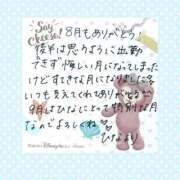 Say
Cheese!
8月もありがとう!
後半は思うように出勤
できず悔しい月になってしまった
けどすてきな月になりました
いつも支えてくれてありがとう
9月はひなにとって特別な月
なのでよろしくね♡
ひなより